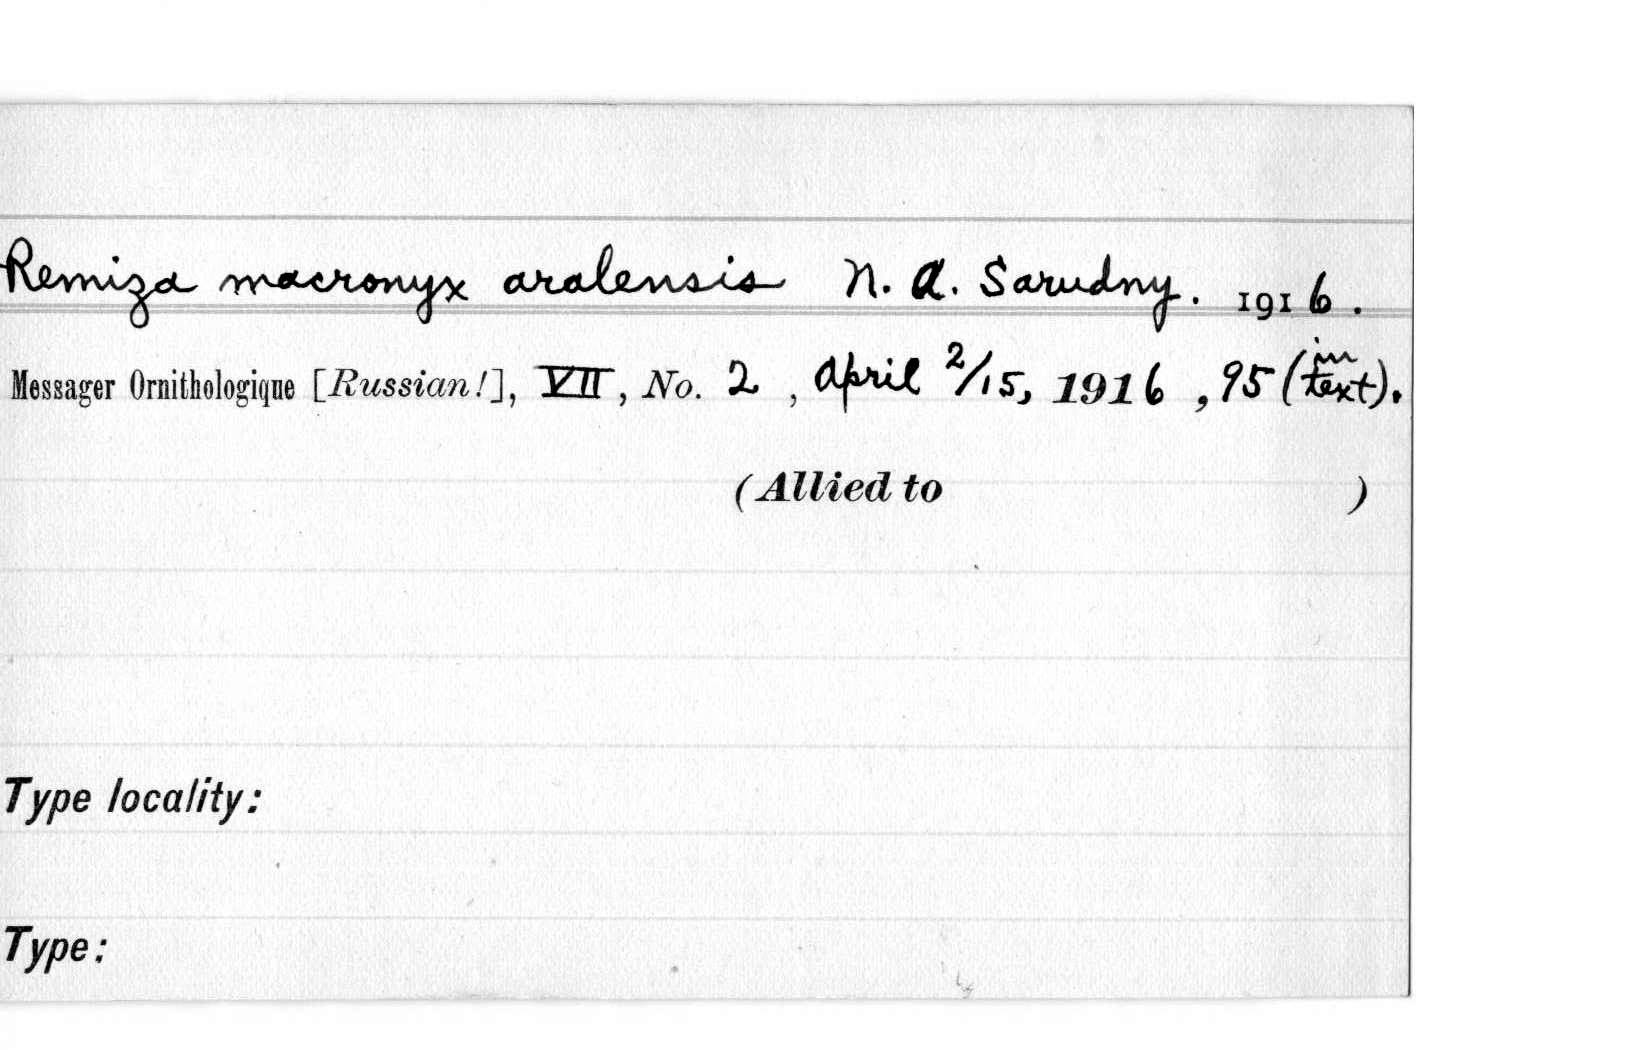 Remiza macronyx aralensis N. A. Sarudny. 1916.
Messager Ornithologique [Russian!], VII, No. 2, April 2/15, 1916, 95 (in text).
(Allied to )
Type locality:
Type: